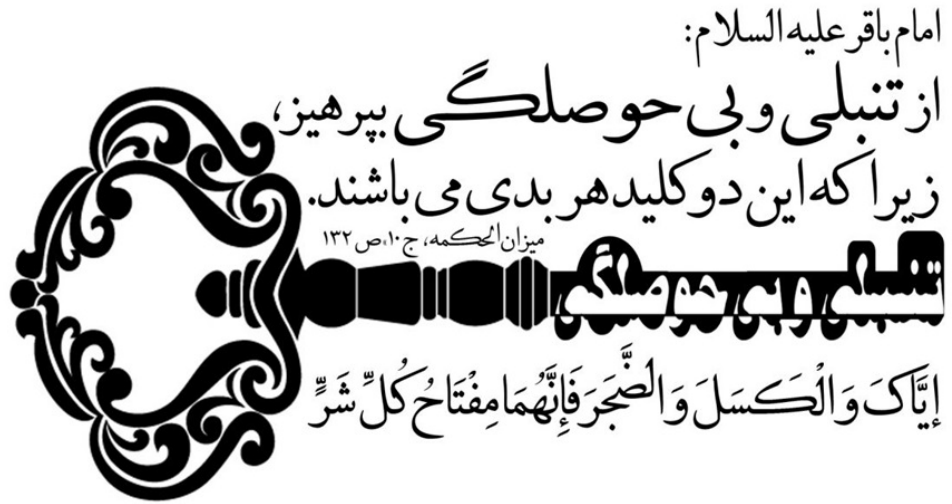 امام باقر علیه السلام:
از تنبلی و بی حوصلگی بپرهیز،
زیرا که این دو کلید هر بدی می باشند.
میزان الحکمه، ج۱۰، ص۱۳۲
تنبلی و بی حوصلگی
إِيَّاكَ وَ الْكَسَلَ وَ الضَّجَرَ فَإِنَّهُمَا مِفْتَاحُ كُلِّ شَرٍّ